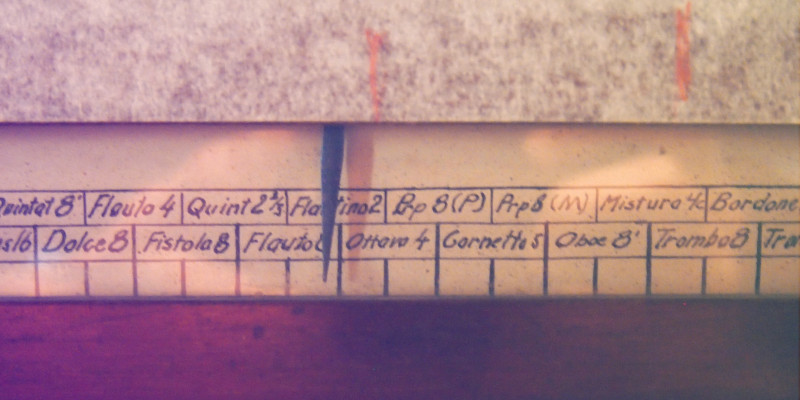 Quintat 8' Flauto 4 Quint 2⅔ Flautino2 Prp 8 (P) Prp 8 (M) Mistura Bordone
Dolce 8 Fistola 8 Flauto 8 Ottava 4 Cornetto 5 Oboe 8' Tromba 8